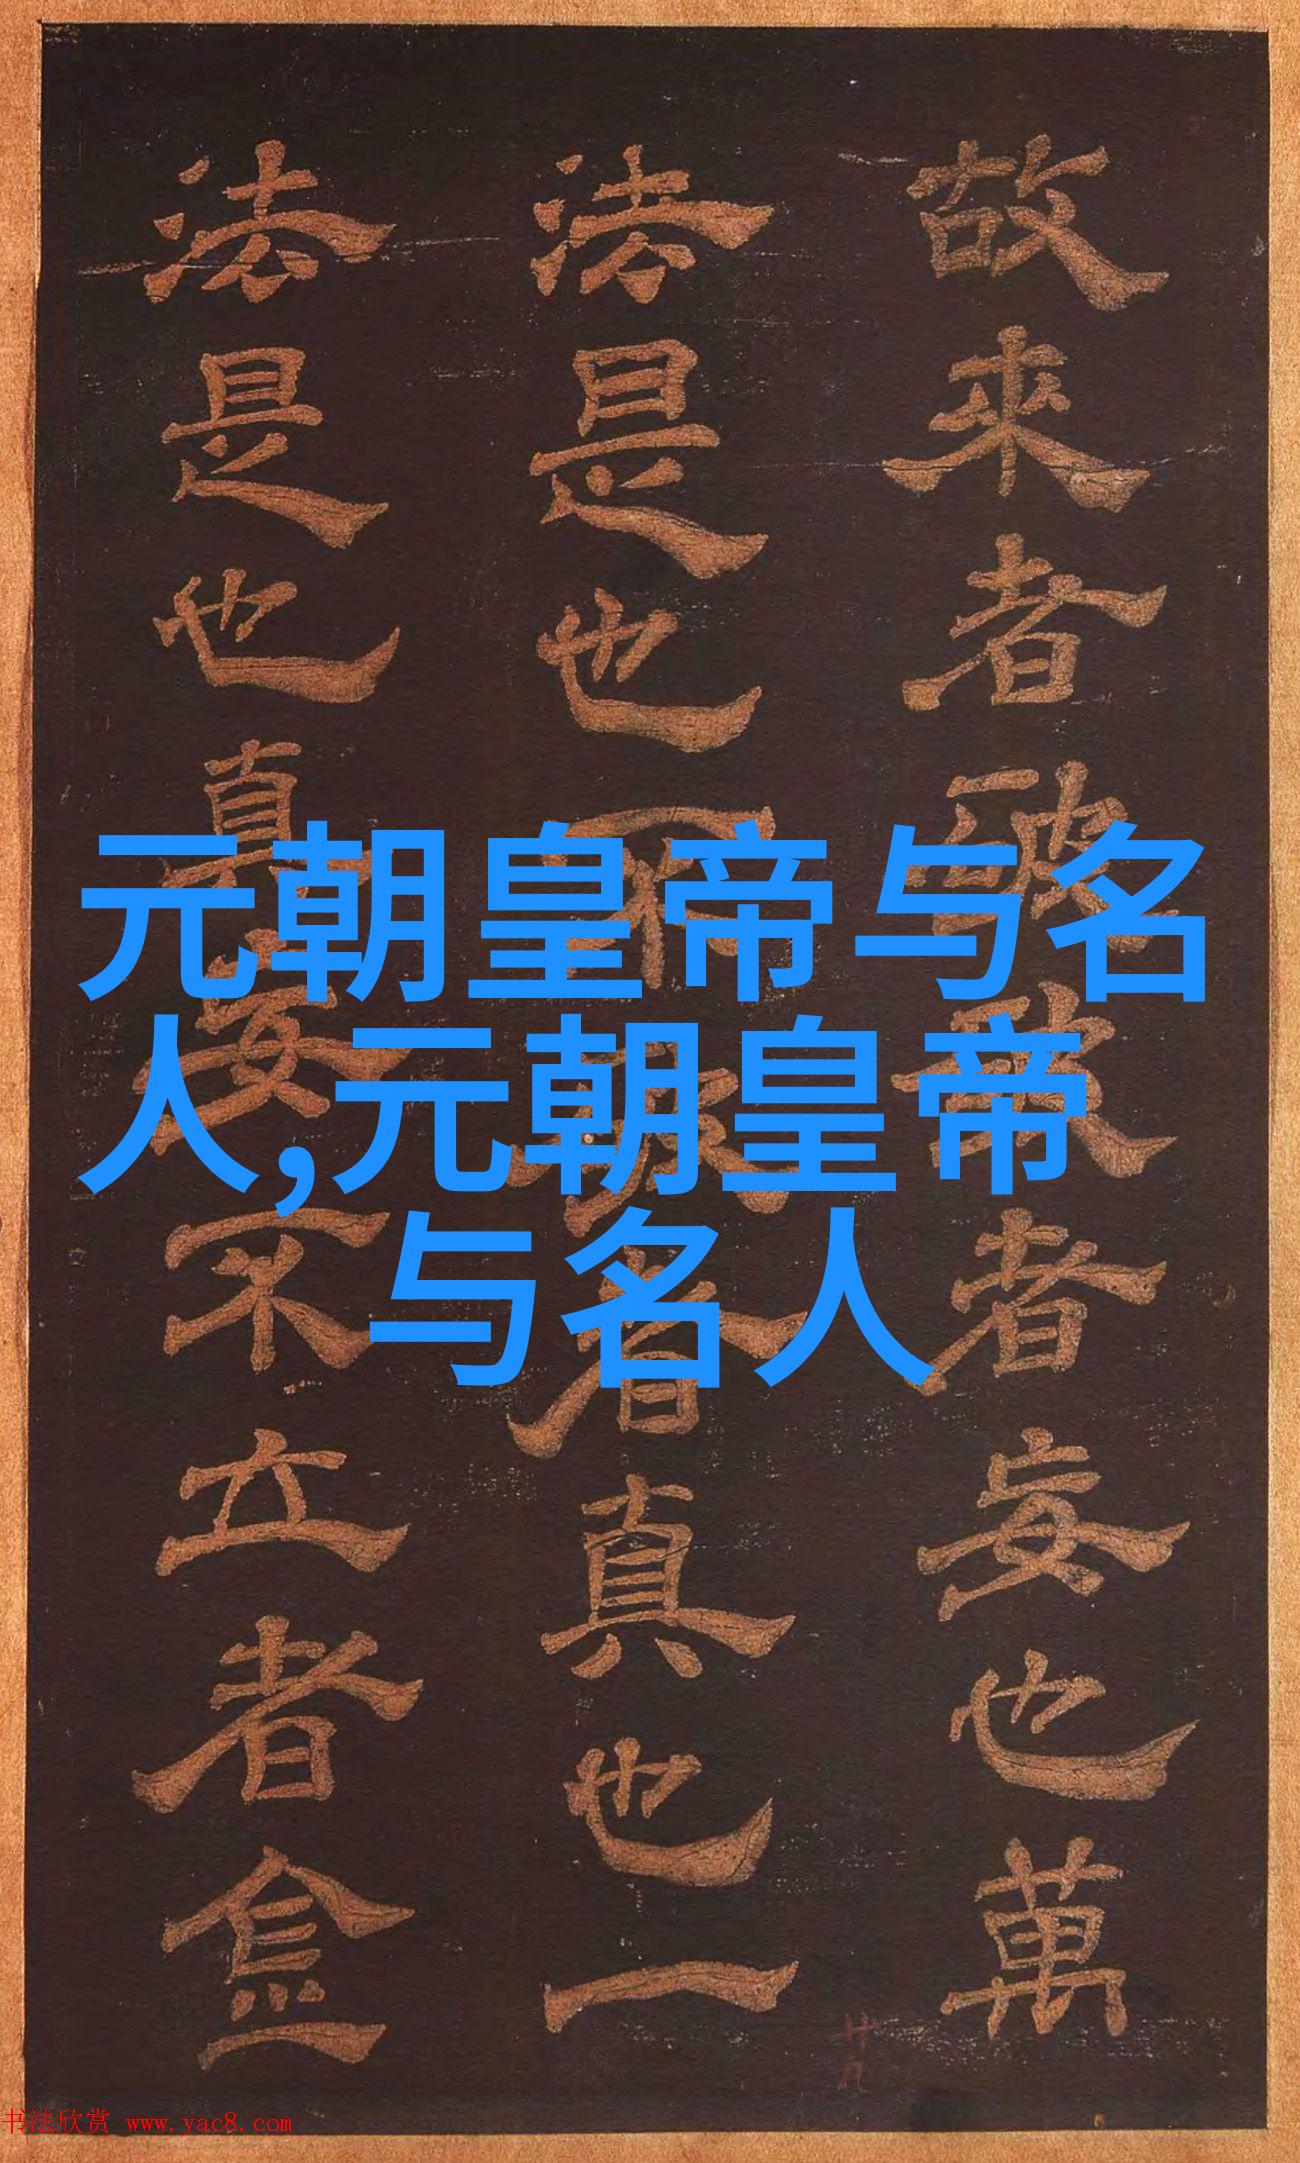 元朝皇帝与名
人,元朝皇帝
与名人
故來者者妄也萬
法是也不者真也一
法是也真妄不立者
书法欣赏 www.yac8.com